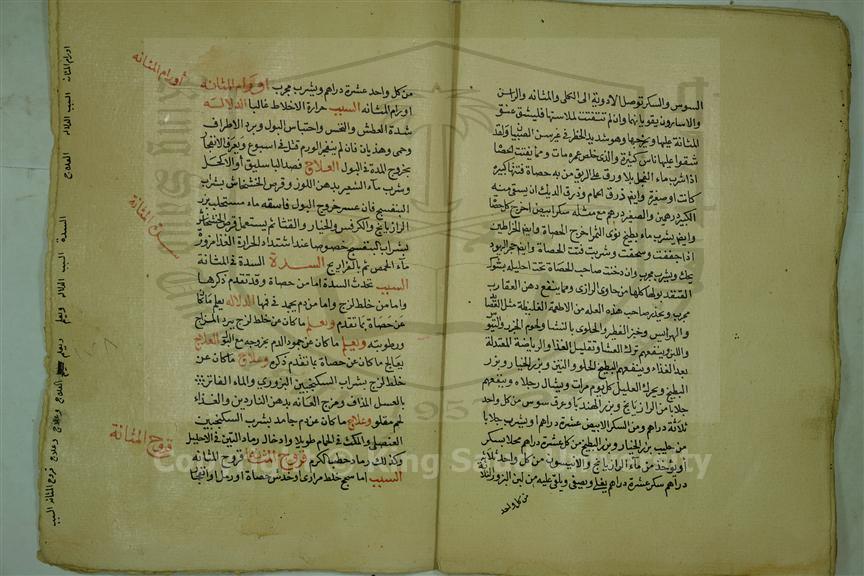 السوس والسكر توصل الادوية الى الكلى والمثانه والراسن
والاسارون يقويانهما وان لم تتفتت لملاستها فليشق عنق
المثانة عليها ويخرجها وهو شديد الخطر في غير سن الصبيا ولقد
شقوا عليها ناس كثيرة والذي خلص عمره مات ومما يفتت الحصا
اذا شرب ماء الفجل بلا ورق على الريق من به حصاة فتتها كبيرة
كانت او صغيرة وايضا ذرق الحمام وذرق الديك ان يستى منه
الكبير درهمين والصغير درهم مع مثله سكرا بيين اخرج كل حصا
وايضا يشرب ماء يطبخ نوى التمر اخرج الحصاة وايضا الخراطين
اذا جففت وسحقت وشربت فتت الحصاة وايضا حجر اليهود
يحك ويشرب مجرب وان دخنت صاحب الحصاة تحت احليله بشوك
القنفد بولها كلها من حاوي الرازي ومما ينفع دهن العقارب
مجرب ويحذر صاحب هذه العله من الاطعمة الغليظة مثل
والهرايس وخبز الفطير والحلوى بالنشا ولحوم الجزر والتيو
واللبن وينفعهم ترك العشا وتقليل الغذا والرياضة المعتدلة
بعد الغذاء وينفعهم البطيخ الحلو والتين وبزر الخيار وبزر
البطيخ ويحرك العليل كل يوم مرات ويشال رجلاه وينفعهم
جلابا من الرازيانج وبزر الهندبا وعرق سوس من كل واحد
ثلاثة دراهم ومن السكر الابيض عشرة دراهم او يشرب جلابا
من حليب بزر الخيار وبزر البطيخ من كل عشرة دراهم محلا بسكر
او يؤخذ من ماء الرازيانج والانيسون من كل واحد ثلاثة
دراهم سكر عشرة دراهم يغلى ويصفى ويلقى عليه من لبن البزور الثلاثة
من كل واحد
من كل واحد عشرة دراهم ويشرب مجرب اورام المثانه
اورام المثانه السبب حرارة الاخلاط غالبا الدلالة
شدة العطش والنخس واحتباس البول وبرد الاطراف
وحمى وهذيان فان لم ينفجر الورم قتل في اسبوع ويعرف الانفجار
بخروج المدة في البول العلاج فصد الباسليق او الاكحل
وشرب ماء الشعير بدهن اللوز وقرص الخشخاش بشراب
البنفسج فان عسر خروج البول فاسقه ماء مستحلب بزر
الرازيانج والكرفس والخيار والقثا ثم يستعمل قرص الخشخاش
بشراب البنفسج خصوصا عند اشتداد الحرارة الغذا مزورة
ماء الحمص ثم بالفراريج السدة السدة في المثانة
السبب تحدث السدة اما من حصاة وقد تقدم ذكرها
واما من خلط لزج واما من دم يجمد في فمها الدلاله يعلم ما كان
عن حصاة بما تقدم ويعلم ما كان عن خلط لزج ببرد المزاج
ورطوبته ويعلم ما كان عن جمود الدم بخروجه مع البول العلاج
يعالج ما كان عن حصاة بما تقدم ذكره وعلاج ما كان عن
خلط لزج بشراب السكنجبين البزوري والماء الفاتر
بالعسل المذاف ومرخ العانه بدهن الناردين والغذاء
لحم مقلو وعلاج ما كان عن دم جامد بشرب السكنجبين
العنصلي والمكث في الحمام طويلا وادخال رماد التين في الاحليل
وكذلك رماد حطب الكرم قروح المثانه قروح المثانه
السبب اما سحج خلط مراري او خدش حصاة او رمل او انفجار
اورام المثانه
سدة المثانة
قروح المثانة
اورام المثانه السبب الدلاله العلاج السدة السبب الدلاله ويعلم ويعلم العلاج وعلاج وعلاج قروح المثانه السبب
Copyright © King Saud University
1957